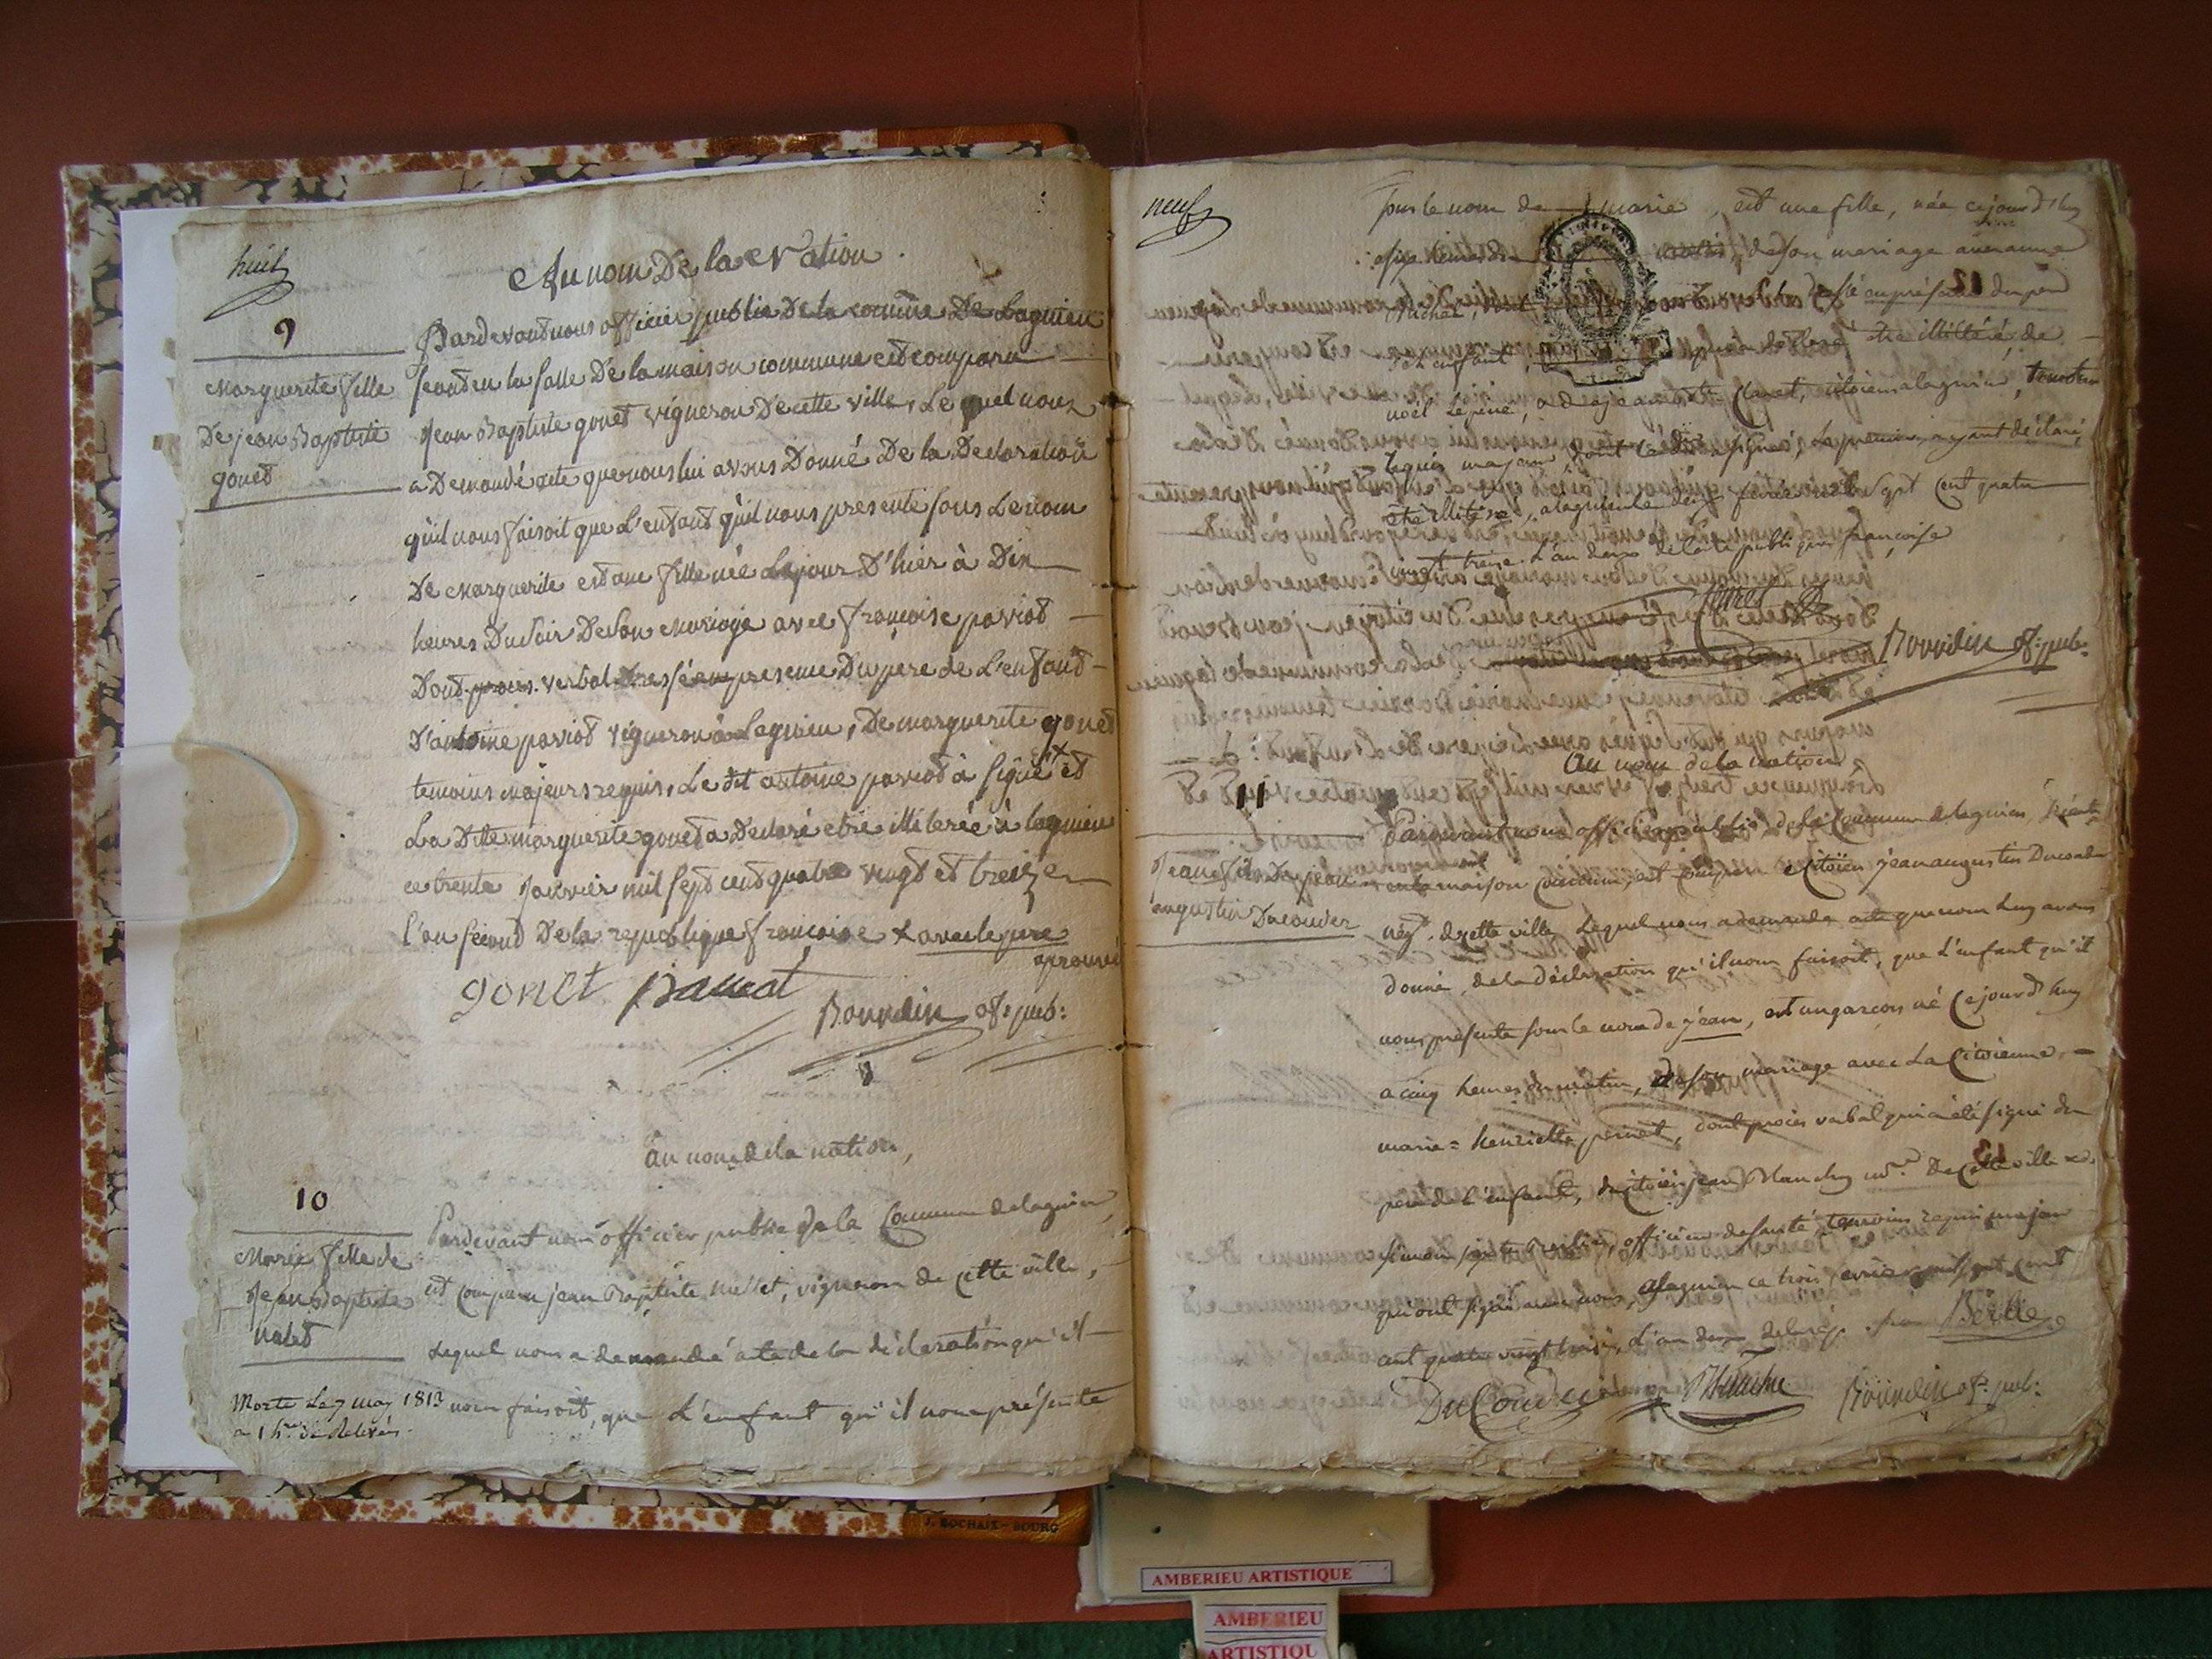 huit
Au nom De la Nation.
9
Marguerite fille
De jean Baptiste
gonet
Pardevant nous officier public De la comune De Lagnieu
seant en la salle De la maison commune est comparu
Jean Baptiste gonet vigneron De cette ville, Lequel nous
a Demandé acte que nous lui avons Donné De la Declaration
qu'il nous faisoit que L'enfant qu'il nous presente sous Le nom
De Marguerite est une fille née Lejour D'hier à Dix
heures Du soir De son mariage avec françoise paviot
Dont procès verbal Dressé en presence Du pere de L'enfant
D'antoine paviot vigneron à Lagnieu, De marguerite gonet
temoins majeurs requis, Le dit antoine paviot à signé + et
La Ditte marguerite gonet a Declaré etre illiterée à lagnieu
ce trente janvier mil sept cent quatre vingt et treize
l'an second De la republique françoise + avec le pere
aprouvé
gonet paviot
Bourdin of: pub:
au nom de la nation,
10
Marie fille de
Jean Baptiste
Morte Le 7 may 1813
Pardevant nous officier public de la Commune de lagnieu,
est comparu jean Baptiste, vigneron de Cette ville,
Lequel nous a demandé acte de la déclaration qu'il
nous faisoit, que L'enfant qu'il nous présente
neuf
sous le nom de marie, est une fille, née cejourd'huy
de son mariage avec anne
en présence du père
déclaré être illitéré de
noël Lépine, Claret, citoien a lagnieu, temoins
requis majeurs, dont le dit signés, le premier ayant déclaré
être illitéré, a lagnieu le deux février mil sept cent quatre
vingt treize L'an deux de la république françoise
Claret
Bourdin of: pub:
Au nom de la nation
11
Jean fils De jean
augustin Ducouder
Pardevant nous officier public de la Commune de lagnieu, séant
en la maison Commune, est comparu Citoïen jean augustin
de cette ville Lequel nous a demandé acte que nous Luy avons
donné, de la déclaration qu'il nous faisoit, que L'enfant qu'il
nous présente sous le nom de jean, est un garçon né Cejourd'huy
a cinq heures du matin, de son mariage avec La Citoienne
marie = henriette, dont procès verbal qui a été signé du
père de L'enfant, du citoïen jean De Cette ville
simon, officier de santé temoins requis majeurs
qui ont signé avec nous, a lagnieu ce trois février mil sept cent
quatre vingt treize, L'an deux de la rép.
Bourdin of: pub:
J. ROCHAIX - BOURG
AMBERIEU ARTISTIQUE
AMBERIEU
ARTISTIQU